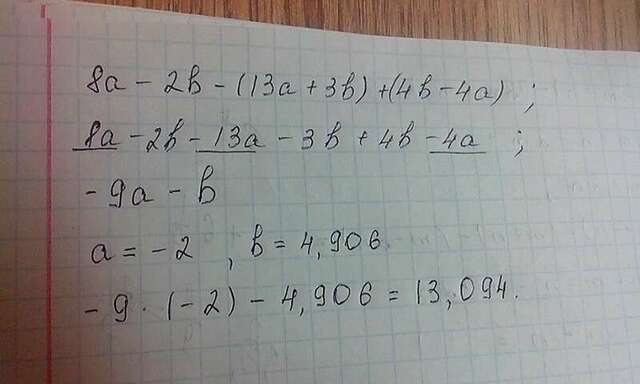 8a - 2b - (13a + 3b) + (4b - 4a) ;
8a - 2b - 13a - 3b + 4b - 4a ;
- 9a - b
a = - 2 , b = 4,906
- 9 · (- 2) - 4,906 = 13,094.